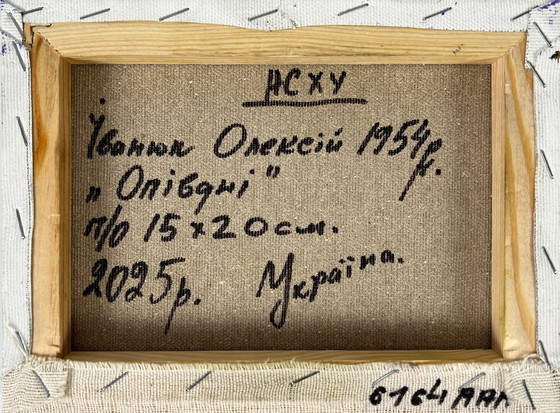 НСХУ
Іванюк Олексій 1954р.
„Опівдні"
п/о 15×20см.
2025р. Україна.
6164ААл